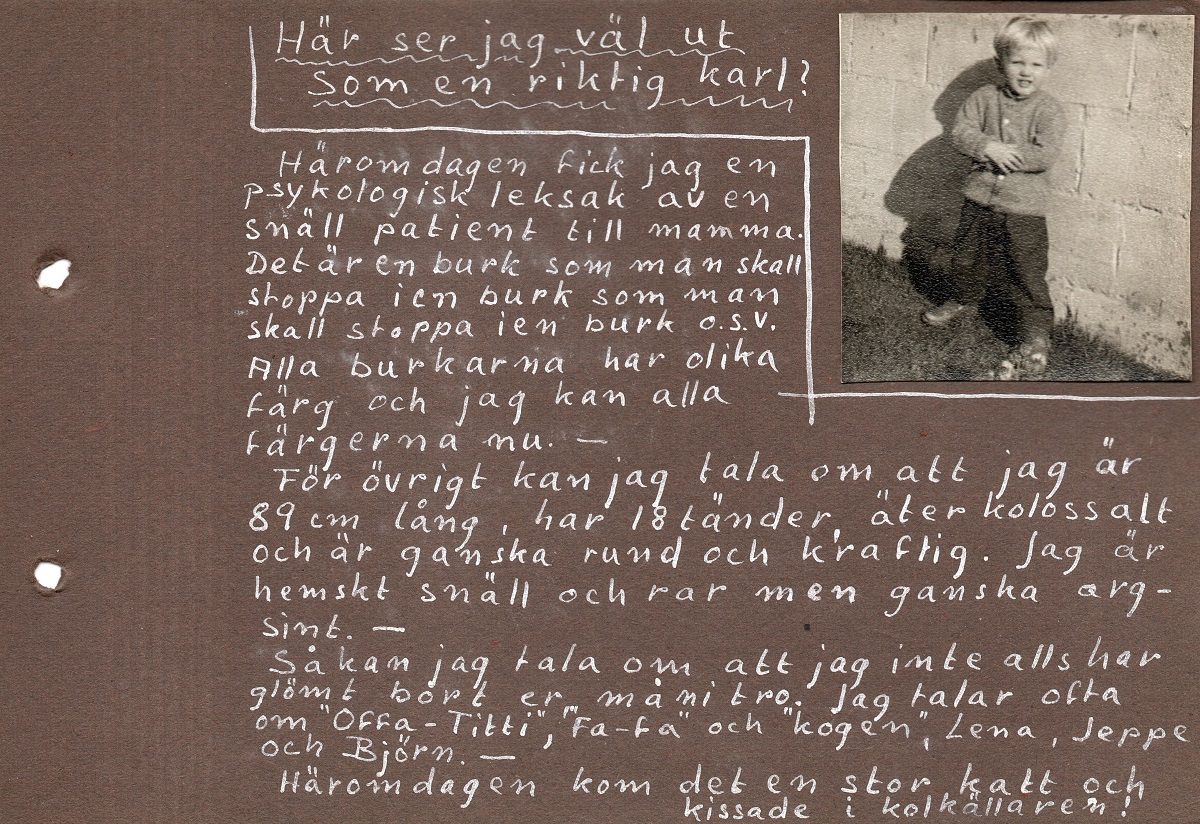 Här ser jag väl ut
som en riktig karl?
Häromdagen fick jag en
psykologisk leksak av en
snäll patient till mamma.
Det är en burk som man skall
stoppa i en burk som man
skall stoppa i en burk o.s.v.
Alla burkarna har olika
färg och jag kan alla
färgerna nu. —
För övrigt kan jag tala om att jag är
89 cm lång, har 18 tänder, äter kolossalt
och är ganska rund och kraftig. Jag är
hemskt snäll och rar men ganska arg-
sint. —
Så kan jag tala om att jag inte alls har
glömt bort er, må ni tro. Jag talar ofta
om "Offa-Titti", "Fa-fa" och "kogen", Lena, Jeppe
och Björn. —
Häromdagen kom det en stor katt och
kissade i kolkällaren!